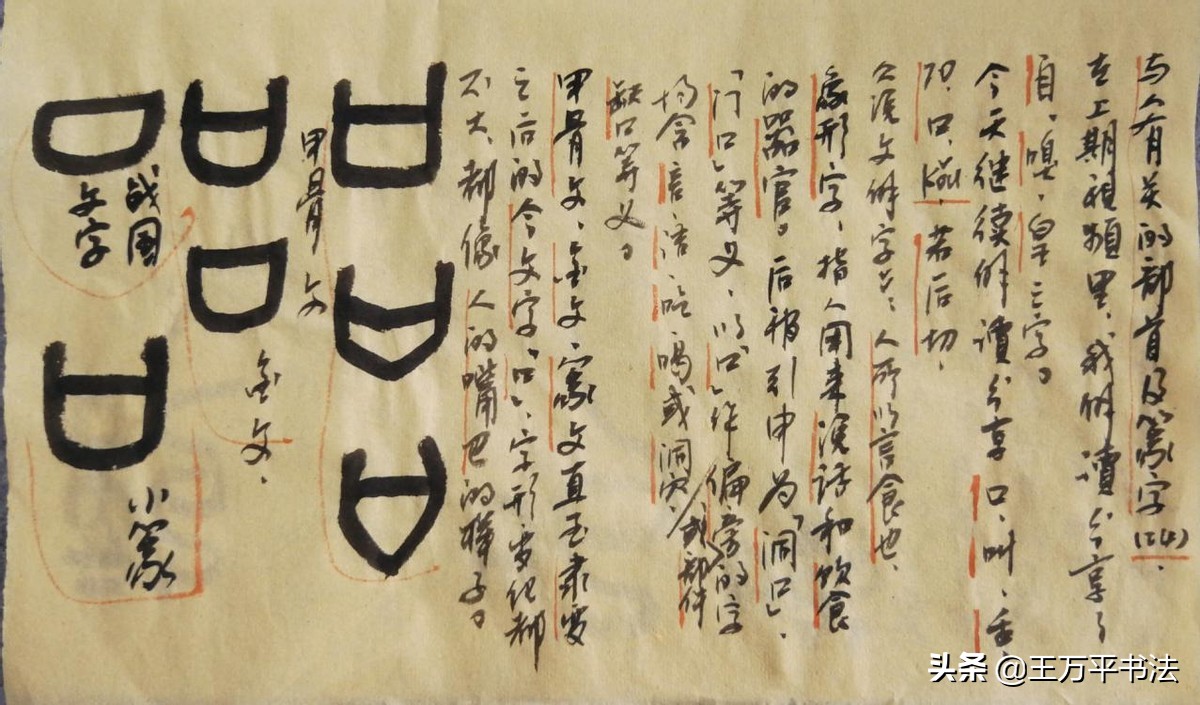 与人有关的部首及篆字(24)、
在上期视频里，我解读分享了
自、嗅、皇三字。
今天继续解读分享口、叫、舌、
口、kǒu、苦后切、
《说文解字》：人所以言食也、
象形字，指人用来说话和饮食
的器官。后稍引申为「洞口」、
「门口」等义，以「口」作偏旁或部件的字
均含言、语、吃、喝或洞穴、
缺口等义。
甲骨文、金文、篆文直至隶变
之后的今文字「口」，字形变化都
不大、都像人的嘴巴的样子。
甲骨文
金文、
战国
文字
小篆
头条 @王万平书法